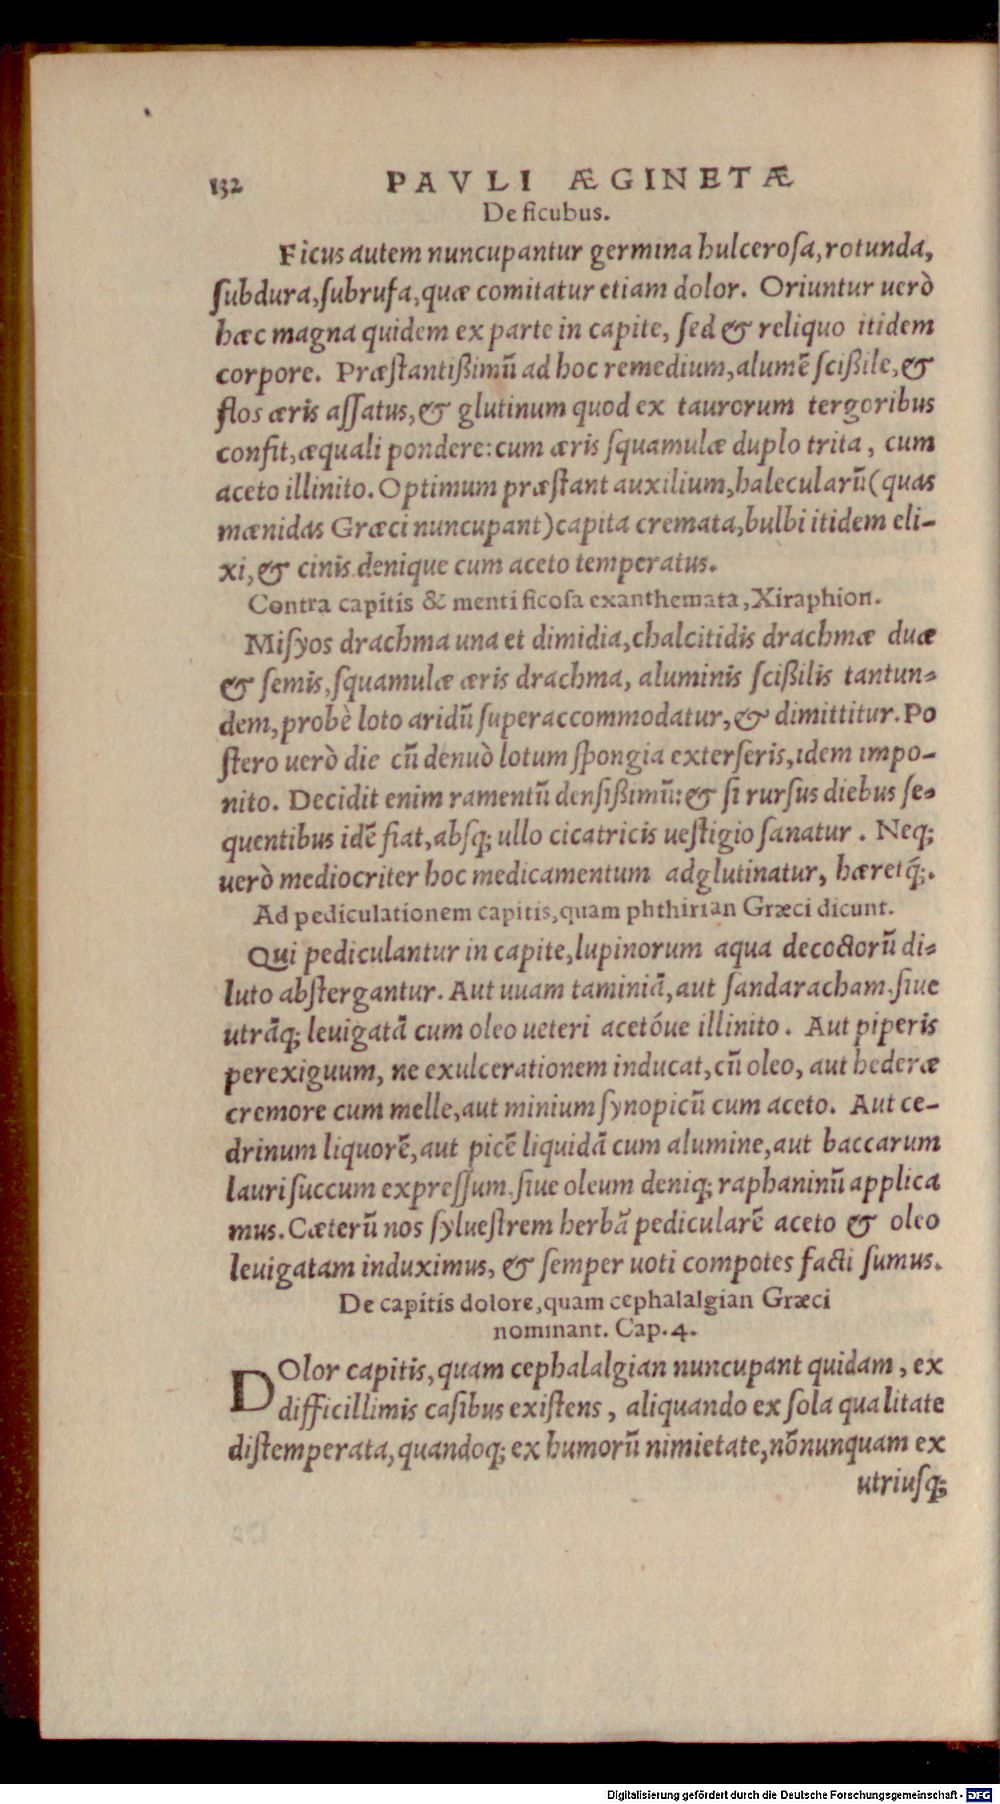 132 PAVLI ÆGINETÆ
De ficubus.
Ficus autem nuncupantur germina hulcerosa, rotunda,
subdura, subrufa, quæ comitatur etiam dolor. Oriuntur uerò
hæc magna quidem ex parte in capite, sed & reliquo itidem
corpore. Præstantißimũ ad hoc remedium, alumẽ scißile, &
flos æris assatus, & glutinum quod ex taurorum tergoribus
confit, æquali pondere: cum æris squamulæ duplo trita, cum
aceto illinito. Optimum præstant auxilium, halecularũ (quas
mænidas Græci nuncupant) capita cremata, bulbi itidem eli-
xi, & cinis denique cum aceto temperatus.
Contra capitis & menti ficosa exanthemata, Xiraphion.
Misyos drachma una et dimidia, chalcitidis drachmæ duæ
& semis, squamulæ æris drachma, aluminis scißilis tantun-
dem, probè loto aridũ superaccommodatur, & dimittitur. Po
stero uerò die cũ denuò lotum spongia exterseris, idem impo-
nito. Decidit enim ramentũ densißimũ: & si rursus diebus se-
quentibus idẽ fiat, absq; ullo cicatricis uestigio sanatur. Neq;
uerò mediocriter hoc medicamentum adglutinatur, hæretq́;.
Ad pediculationem capitis, quam phthirian Græci dicunt.
Qui pediculantur in capite, lupinorum aqua decoctorũ di-
luto abstergantur. Aut uuam taminiã, aut sandaracham, siue
utrãq; leuigatã cum oleo ueteri acetóue illinito. Aut piperis
perexiguum, ne exulcerationem inducat, cũ oleo, aut hederæ
cremore cum melle, aut minium synopicũ cum aceto. Aut ce-
drinum liquorẽ, aut picẽ liquidã cum alumine, aut baccarum
lauri succum expressum, siue oleum deniq; raphaninũ applica
mus. Cæterũ nos syluestrem herbã pedicularẽ aceto & oleo
leuigatam induximus, & semper uoti compotes facti sumus.
De capitis dolore, quam cephalalgian Græci
nominant. Cap. 4.
DOlor capitis, quam cephalalgian nuncupant quidam, ex
difficillimis casibus existens, aliquando ex sola qualitate
distemperata, quandoq; ex humorũ nimietate, nõnunquam ex
utriusq;
Digitalisierung gefördert durch die Deutsche Forschungsgemeinschaft - DFG